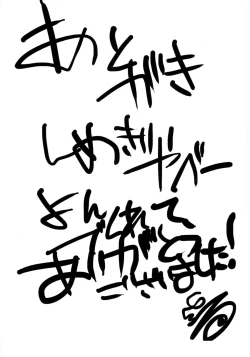 あとがき
しめきりヤバー
よんでくれて
ありがとうございました!